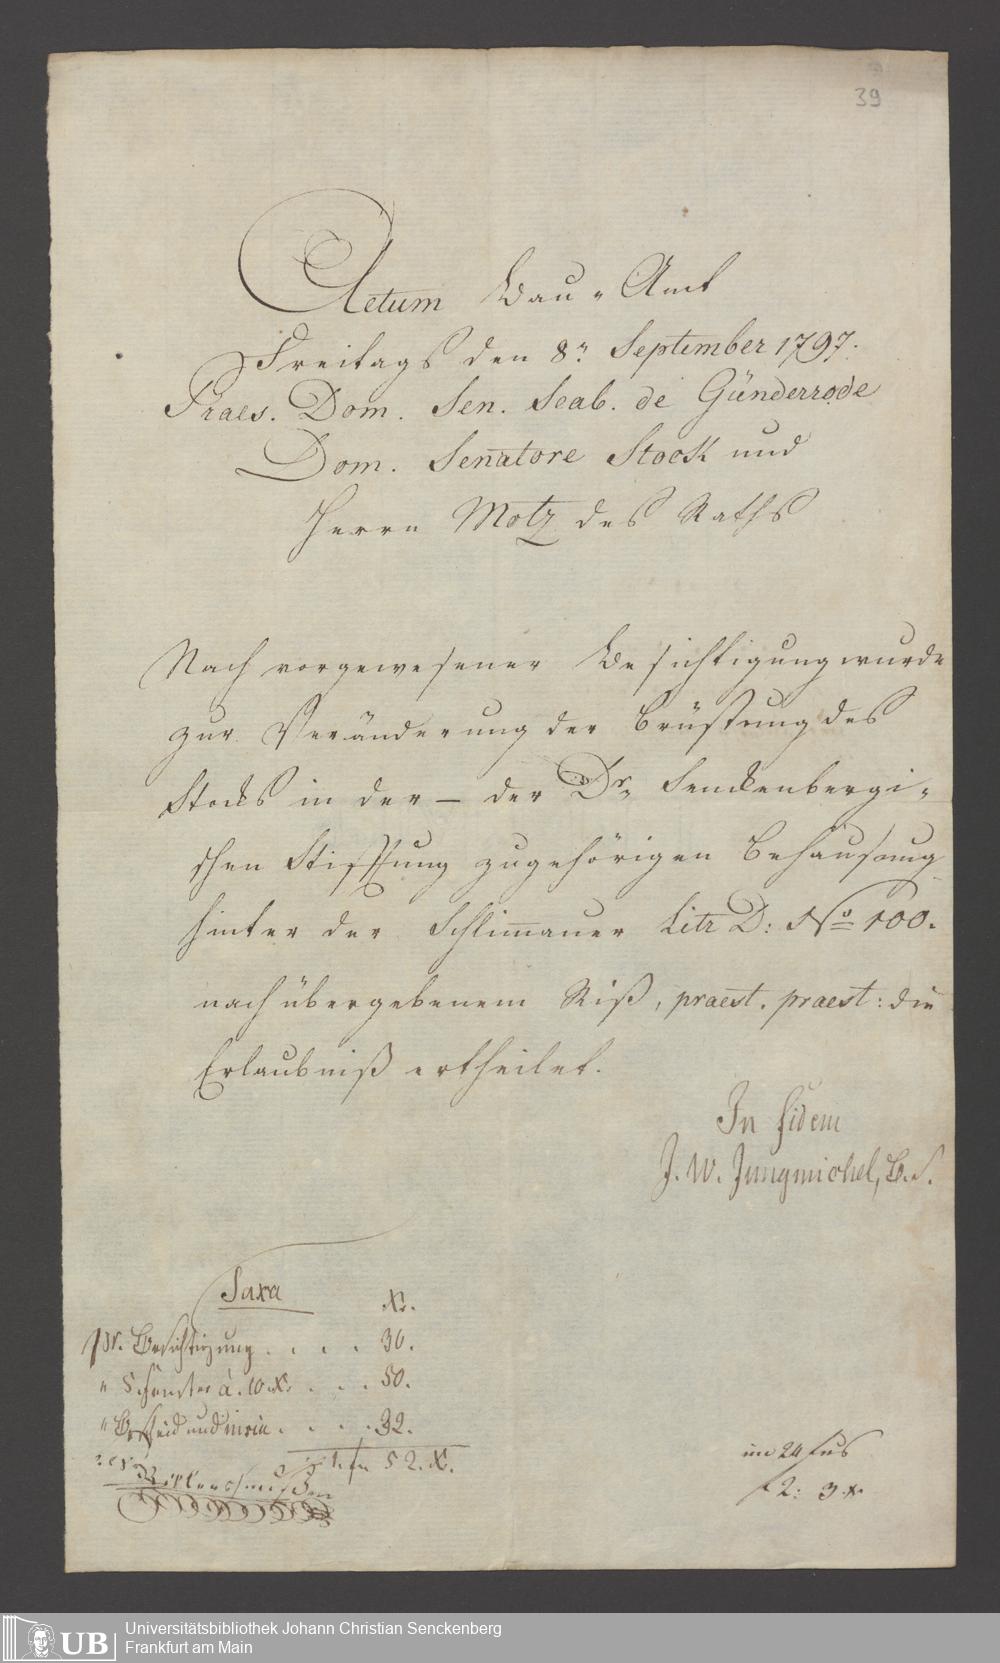 39
Actum Bau-Amt
Freitags den 8n. September 1797.
Praes. Dom. Sen. Scab. de Günderrode
Dom. Senatore Stock und
Herrn Motz des Raths
Nach vorgewesener Besichtigung wurde
zur Veränderung der Brüstung des
Stocks in der – der Dr. Senckenbergi-
schen Stiftung zugehörigen Behausung
hinter der Schlimmauer Litr D: No 100.
nach übergebenem Riß, praest. praest: die
Erlaubniß ertheilet.
In fidem
J. W. Jungmichel, B. S.
Taxa
Xr.
pr. Besichtigung . . . . 30.
" 5 à. 10 Xr. . . . 50.
" Bescheid und . . . . 32.
1. fl. 52. X.
im 24 fus
f 2: 3 x
UB Universitätsbibliothek Johann Christian Senckenberg
Frankfurt am Main